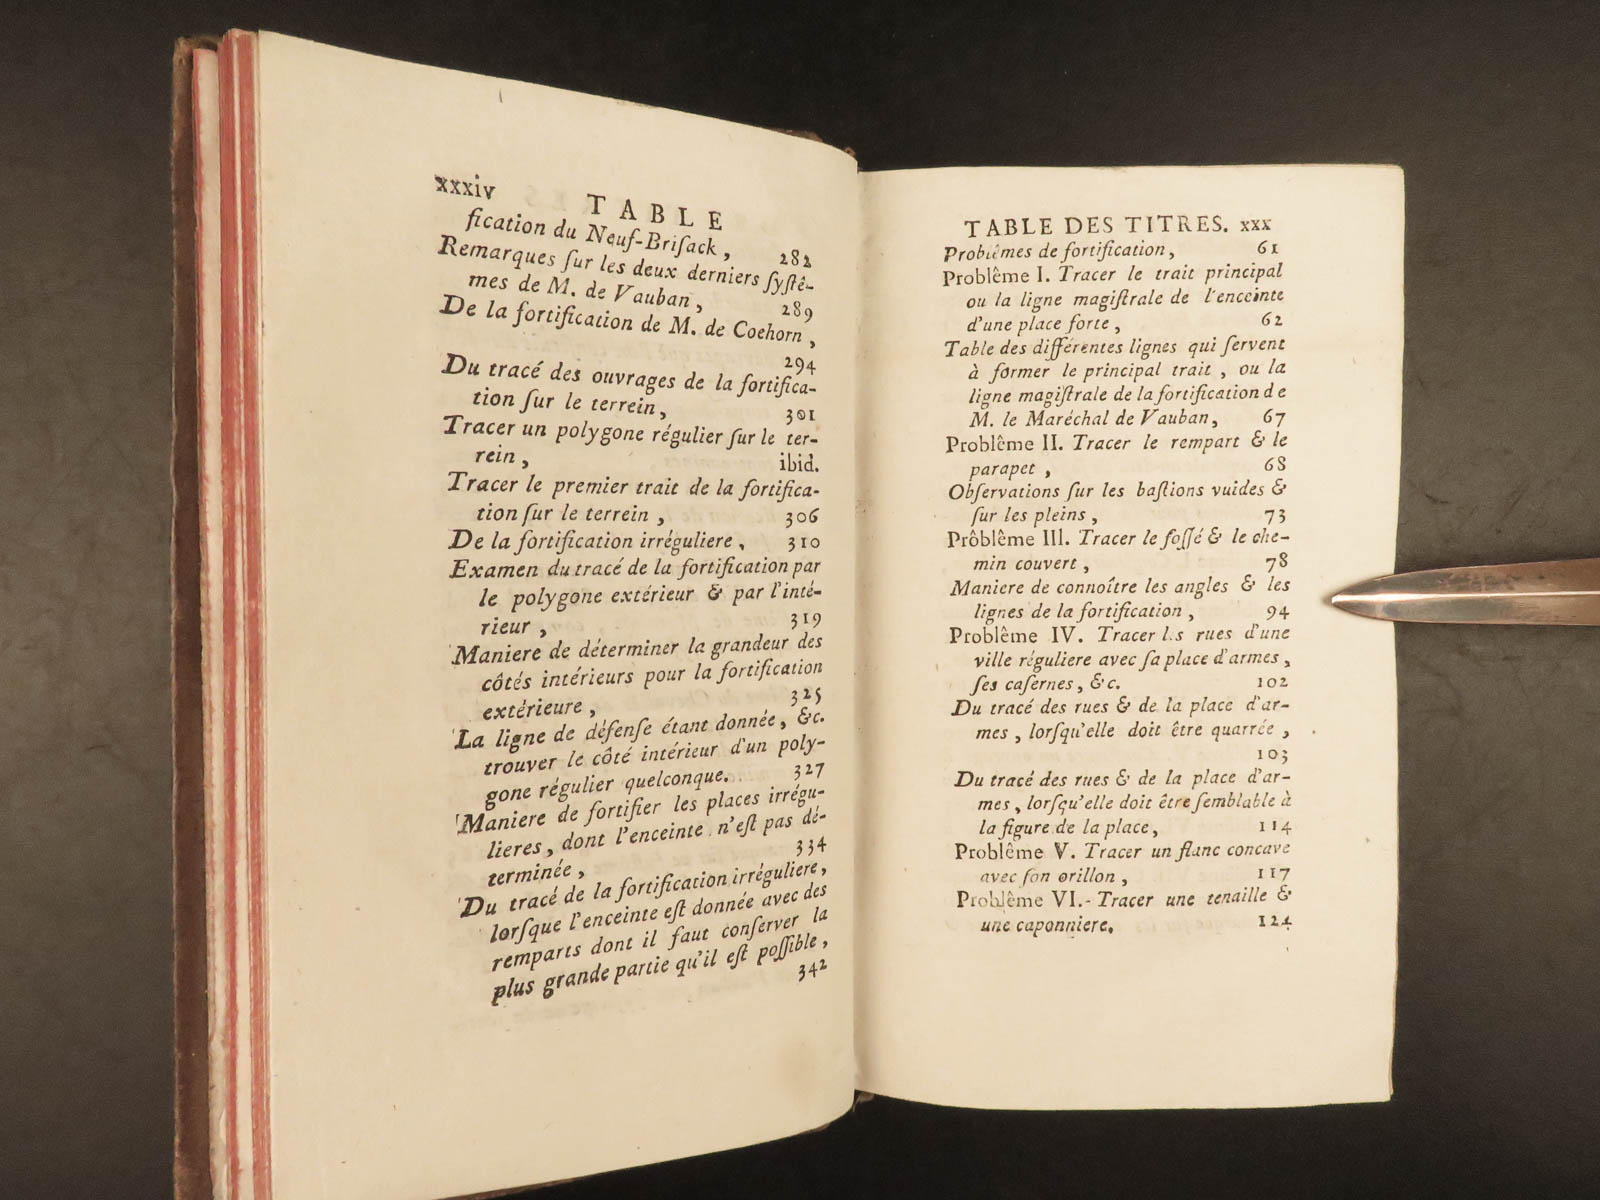 xxxiv
TABLE
fication du Neuf-Briſack, 282
Remarques ſur les deux derniers ſyſtê-
mes de M. de Vauban, 289
De la fortification de M. de Coehorn,
294
Du tracé des ouvrages de la fortifica-
tion ſur le terrein, 301
Tracer un polygone régulier ſur le ter-
rein, ibid.
Tracer le premier trait de la fortifica-
tion ſur le terrein, 306
De la fortification irréguliere, 310
Examen du tracé de la fortification par
le polygone extérieur & par l'inté-
rieur, 319
Maniere de déterminer la grandeur des
côtés intérieurs pour la fortification
extérieure, 325
La ligne de défenſe étant donnée, &c.
trouver le côté intérieur d'un poly-
gone régulier quelconque. 327
Maniere de fortifier les places irrégu-
lieres, dont l'enceinte n'eſt pas dé-
terminée, 334
Du tracé de la fortification irréguliere,
lorſque l'enceinte eſt donnée avec des
remparts dont il faut conſerver la
plus grande partie qu'il eſt poſſible,
342
TABLE DES TITRES. xxx
Problêmes de fortification, 61
Problême I. Tracer le trait principal
ou la ligne magiſtrale de l'enceinte
d'une place forte, 62
Table des différentes lignes qui ſervent
à former le principal trait, ou la
ligne magiſtrale de la fortification de
M. le Maréchal de Vauban, 67
Problême II. Tracer le rempart & le
parapet, 68
Obſervations ſur les baſtions vuides &
ſur les pleins, 73
Prôblême III. Tracer le foſſé & le che-
min couvert, 78
Maniere de connoître les angles & les
lignes de la fortification, 94
Problême IV. Tracer les rues d'une
ville réguliere avec ſa place d'armes,
ſes caſernes, &c. 102
Du tracé des rues & de la place d'ar-
mes, lorſqu'elle doit être quarrée,
103
Du tracé des rues & de la place d'ar-
mes, lorſqu'elle doit être ſemblable à
la figure de la place, 114
Problême V. Tracer un flanc concave
avec ſon orillon, 117
Problême VI. Tracer une tenaille &
une caponniere. 124